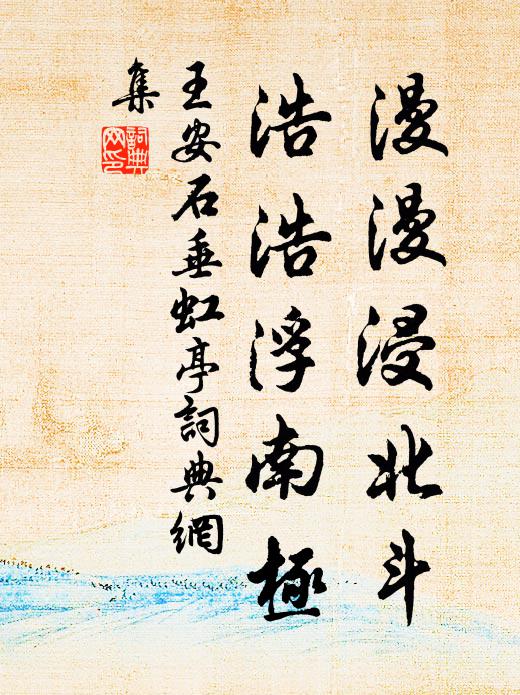 漫漫浸北斗
浩浩浮南極
王安石垂虹亭詞典網
集
詞典
网印